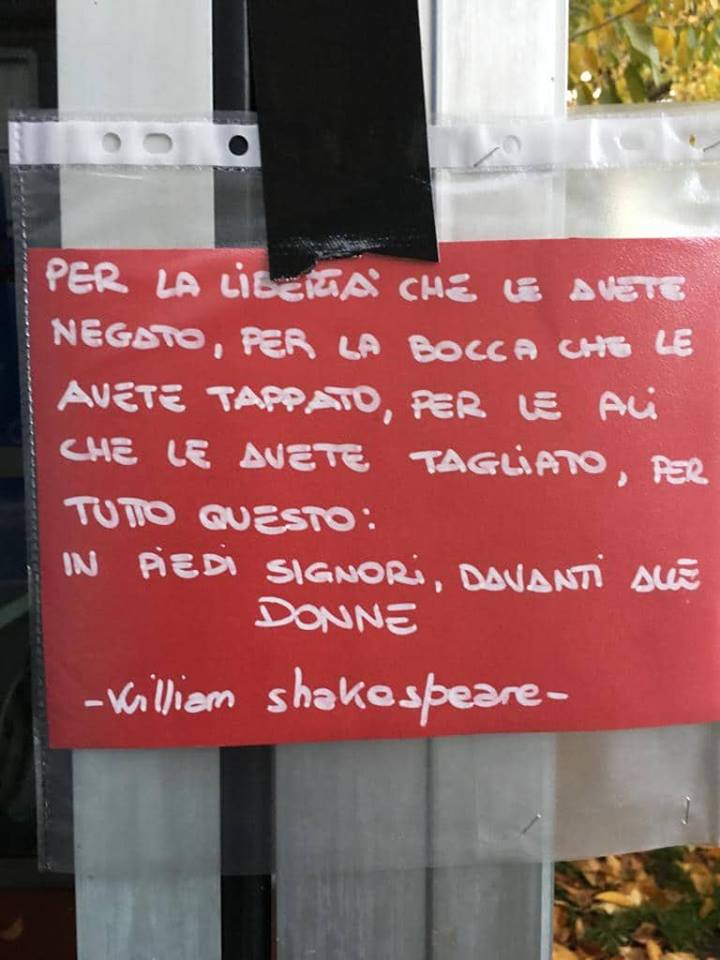 PER LA LIBERTA' CHE LE AVETE
NEGATO, PER LA BOCCA CHE LE
AVETE TAPPATO, PER LE ALI
CHE LE AVETE TAGLIATO, PER
TUTTO QUESTO:
IN PIEDI SIGNORI, DAVANTI ALLE
DONNE
-William shakespeare-